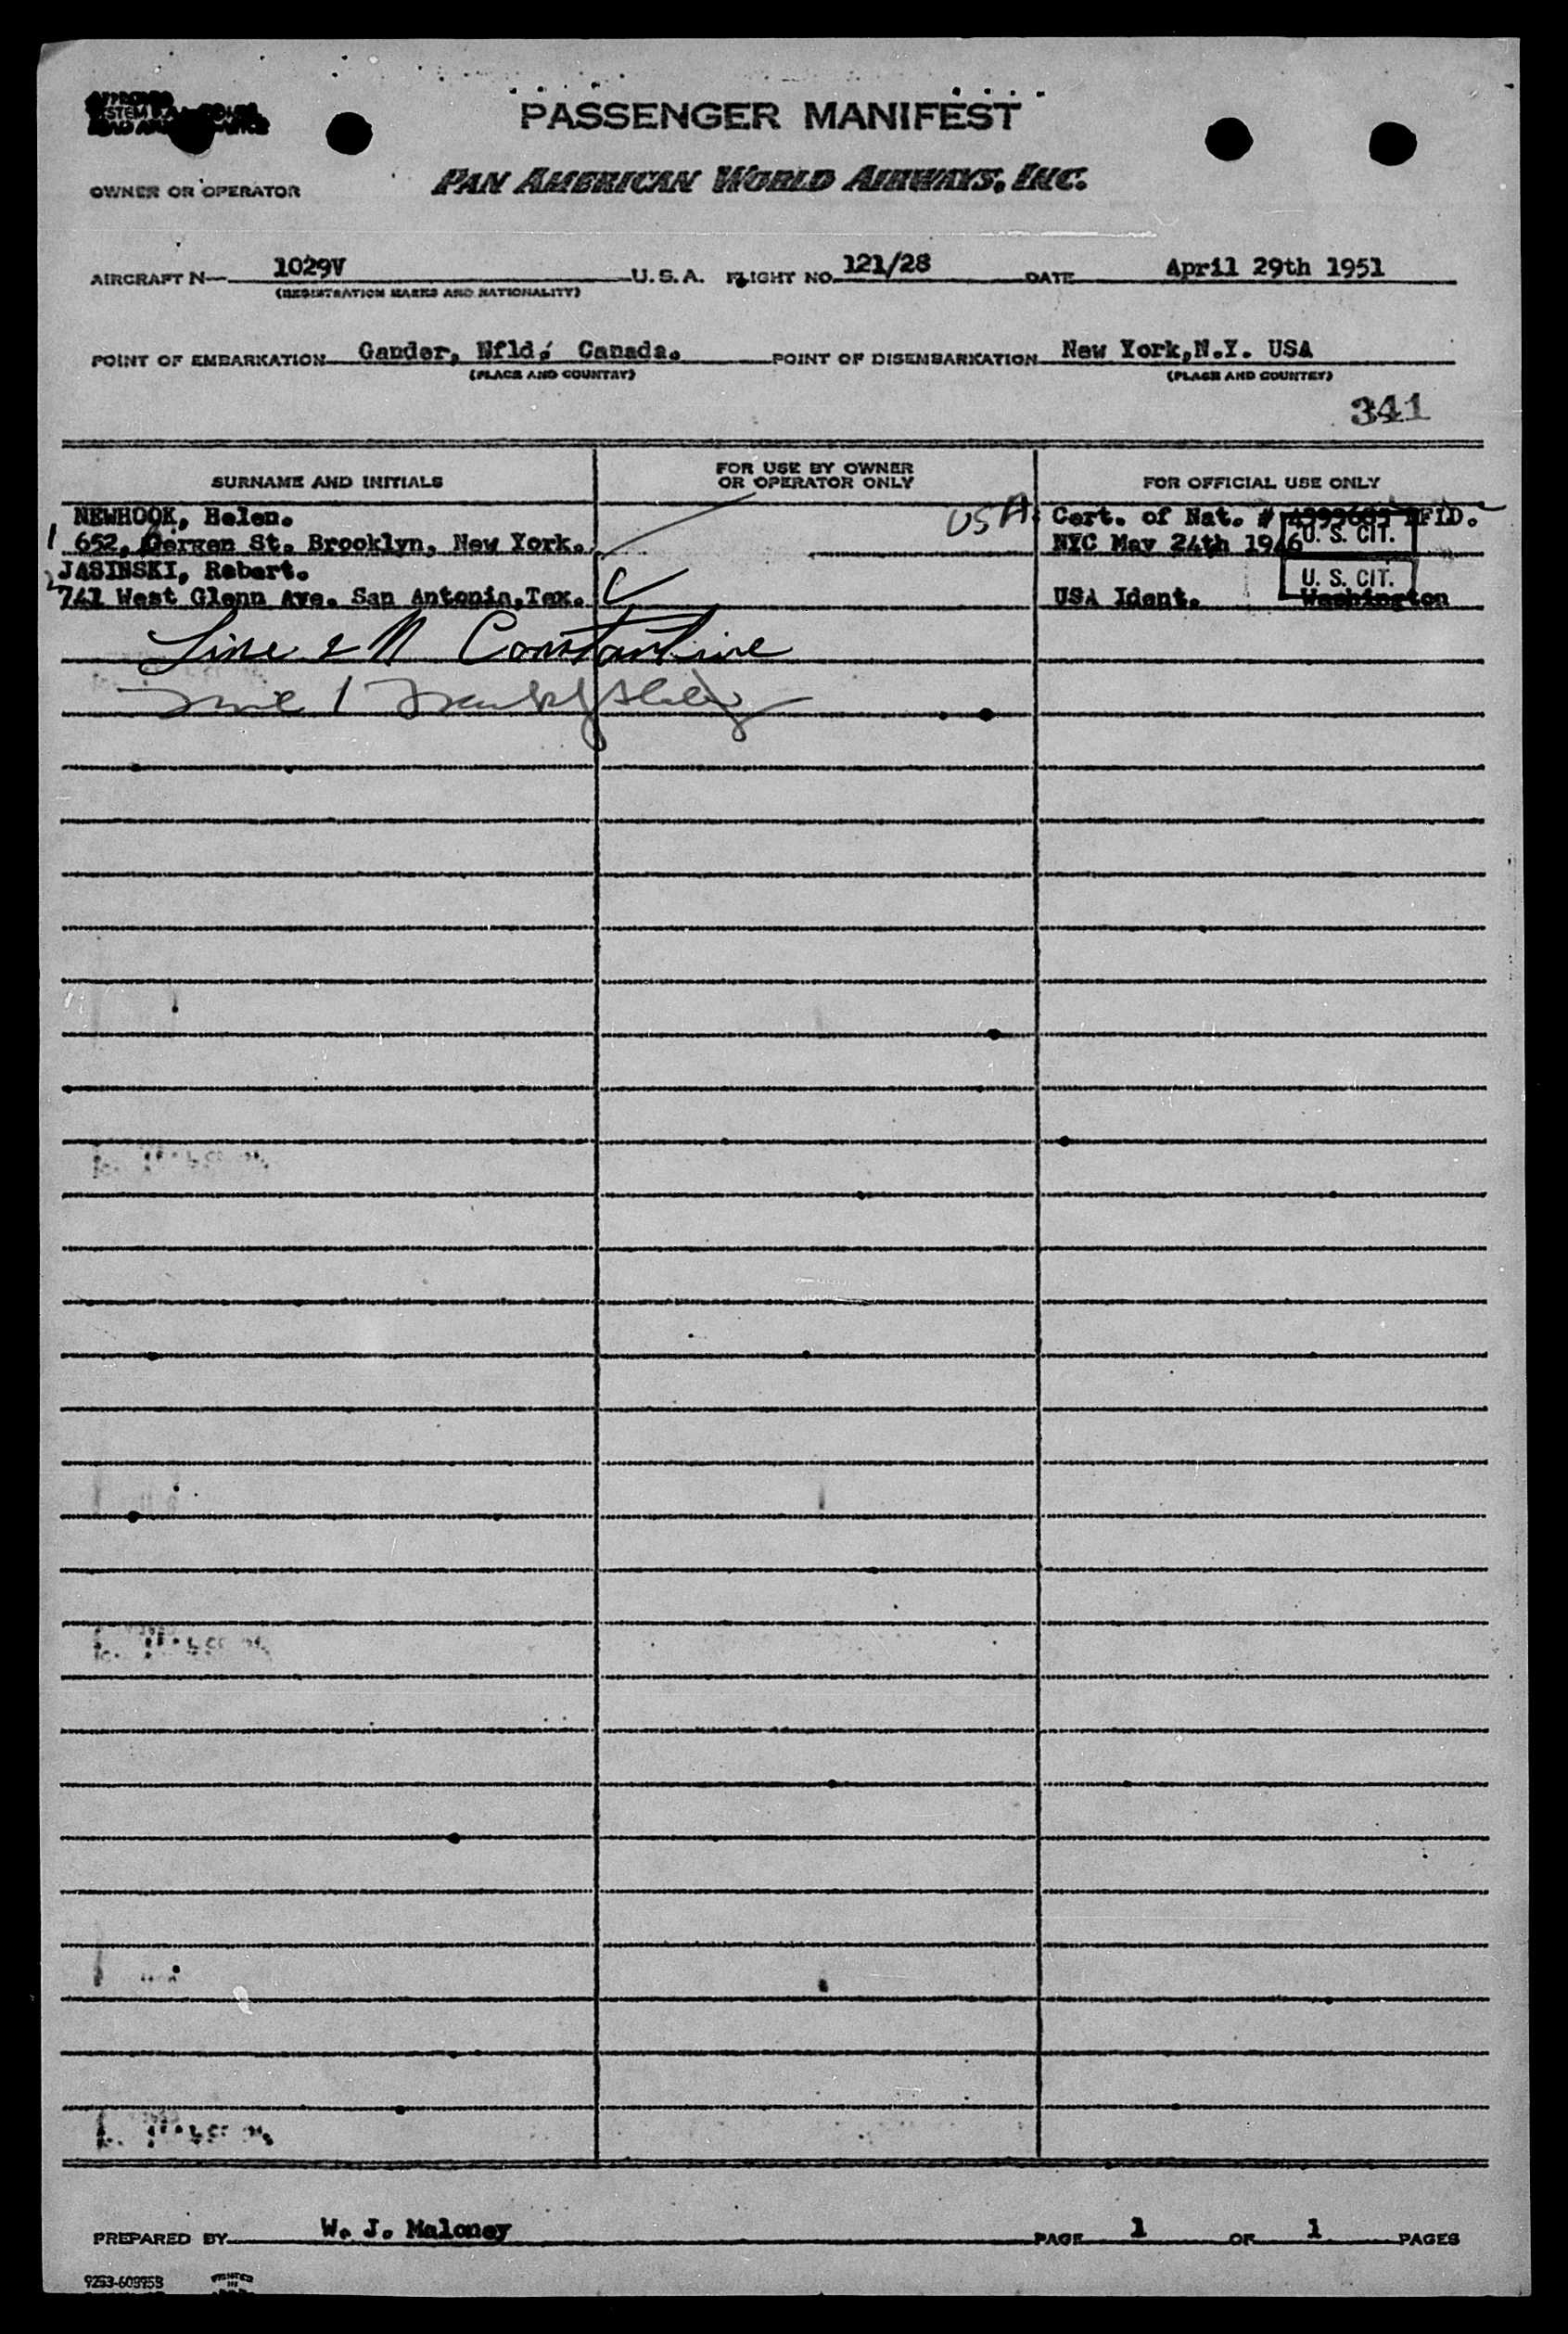 PASSENGER MANIFEST
OWNER OR OPERATOR PAN AMERICAN WORLD AIRWAYS, INC.
AIRCRAFT N— 1029V U.S.A. FLIGHT NO. 121/28 DATE April 29th 1951
(REGISTRATION MARKS AND NATIONALITY)
POINT OF EMBARKATION Gander, Nfld, Canada. POINT OF DISEMBARKATION New York,N.Y. USA
(PLACE AND COUNTRY) (PLACE AND COUNTRY)
341
SURNAME AND INITIALS FOR USE BY OWNER OR OPERATOR ONLY FOR OFFICIAL USE ONLY
NEWHOOK, Helen. USA Cert. of Nat. #
1 652, Bergen St. Brooklyn, New York. NYC May 24th 1946 U. S. CIT.
JASINSKI, Robert. U. S. CIT.
2 741 West Glenn Ave. San Antonio,Tex. USA Ident. Washington
Line 2 N Constantine
Line 1
PREPARED BY W. J. Maloney PAGE 1 OF 1 PAGES
PRINTED IN